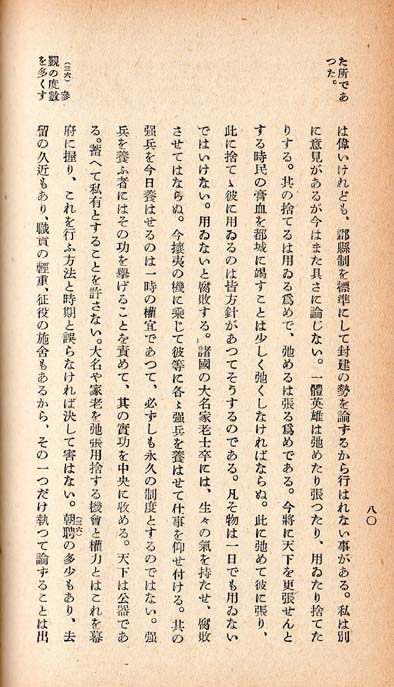 た所であ
つた。
(三六) 參
覲の度數
を多くす
八〇
は偉いけれども、郡縣制を標準にして封建の勢を論ずるから行はれない事がある。私は別
に意見があるが今はまた具さに論じない。一體英雄は弛めたり張つたり、用ゐたり捨てた
りする。其の捨てるは用ゐる爲めで、弛めるは張る爲めである。今將に天下を更張せんと
する時民の膏血を都城に竭すことは少しく弛くしなければならぬ。此に弛めて彼に張り、
此に捨てゝ彼に用ゐるのは皆方針があつてそうするのである。凡そ物は一日でも用ゐない
ではいけない。用ゐないと腐敗する。諸國の大名家老士卒には、生々の氣を持たせ、腐敗
させてはならぬ。今攘夷の機に乘じて彼等に各〻强兵を養はせて仕事を仰せ付ける。其の
强兵を今日養はせるのは一時の權宜であつて、必ずしも永久の制度とするのではない。强
兵を養ふ者にはその功を擧げることを責めて、其の實功を中央に收める。天下は公器であ
る。蓄へて私有とすることを許さない。大名や家老を弛張用捨する機會と權力とはこれを幕
府に握り、これを行ふ方法と時期と誤らなければ決して害はない。朝聘(三六)の多少もあり、去
留の久近もあり、職貢の輕重、征役の施舍もあるから、その一つだけ執つて論ずることは出